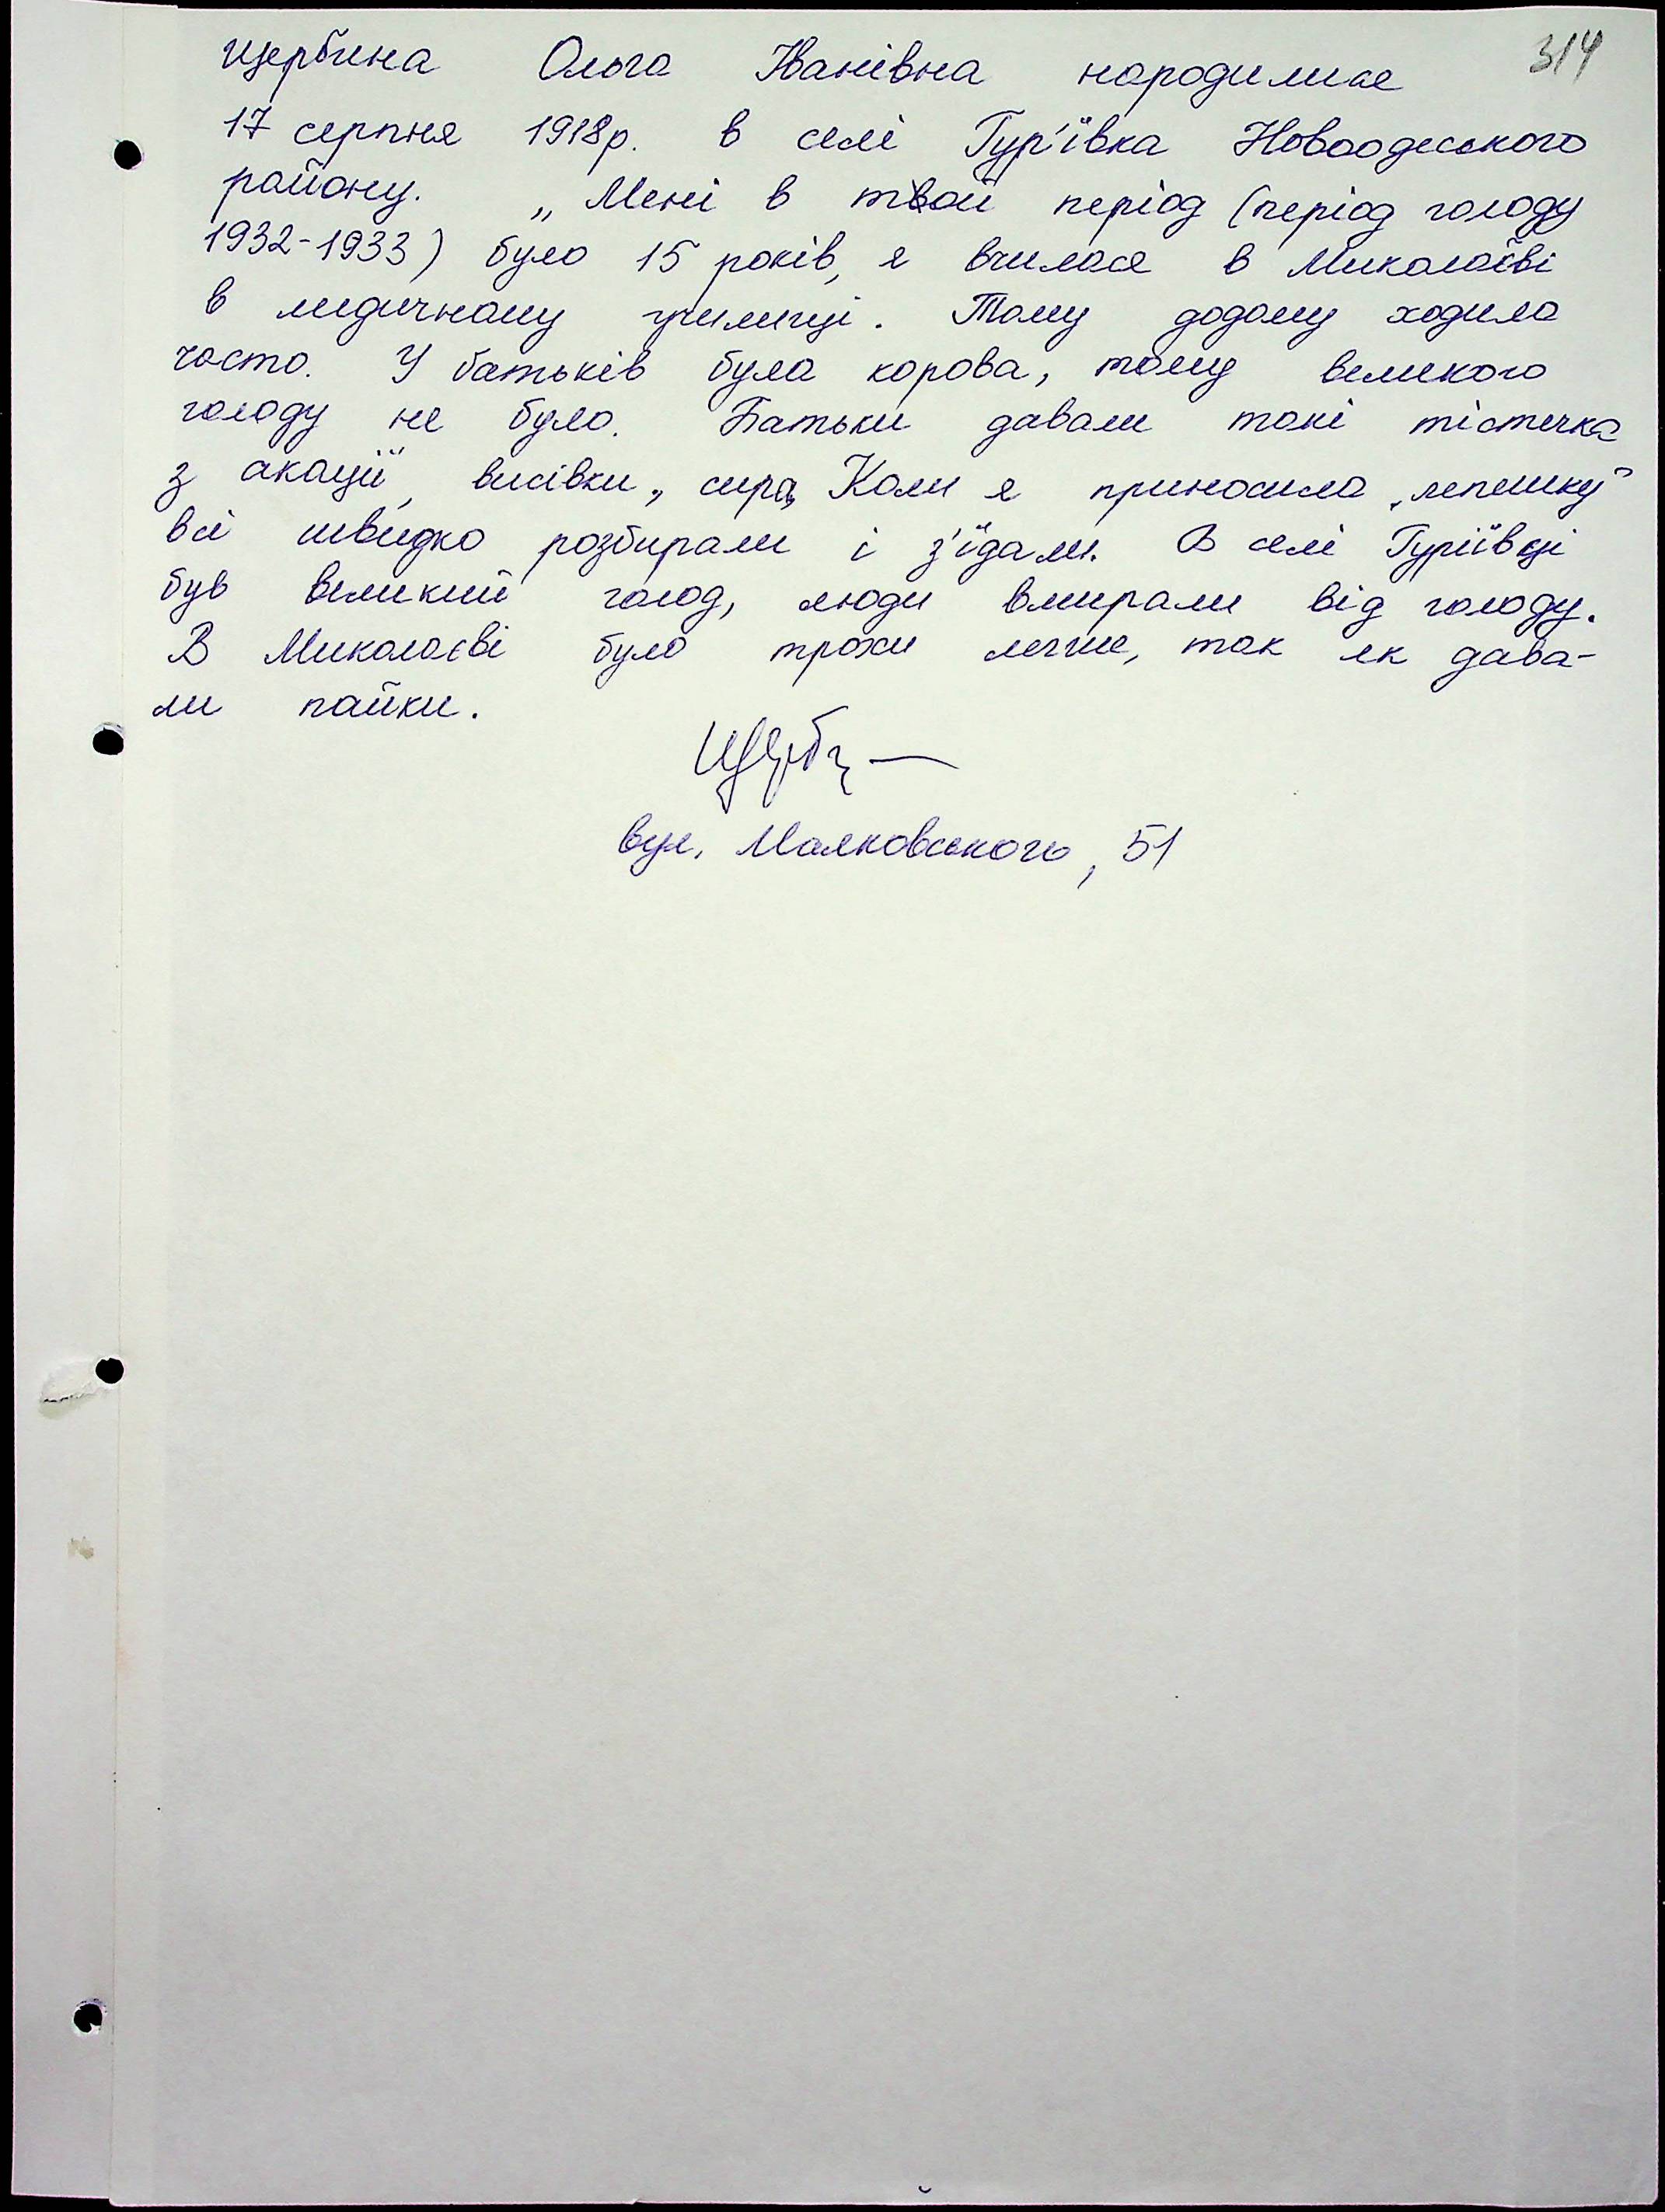 314
Щербина Ольга Іванівна народилися
17 серпня 1918р. в селі Гур'ївка Новоодеського
району. „Мені в твой період (період голоду
1932-1933) було 15 років, я вчилася в Миколаїві
в медичному училищі. Тому додому ходила
часто. У батьків була корова, тому великого
голоду не було. Батьки давали такі тістечка
з акації, висівки, сира, Коли я приносила „лепешку"
всі швидко розбирали і з'їдали. В селі Гуріївці
був великий голод, люди вмирали від голоду.
В Миколаєві було трохи легше, так як дава-
ли пайки.
вул. Маяковського, 51